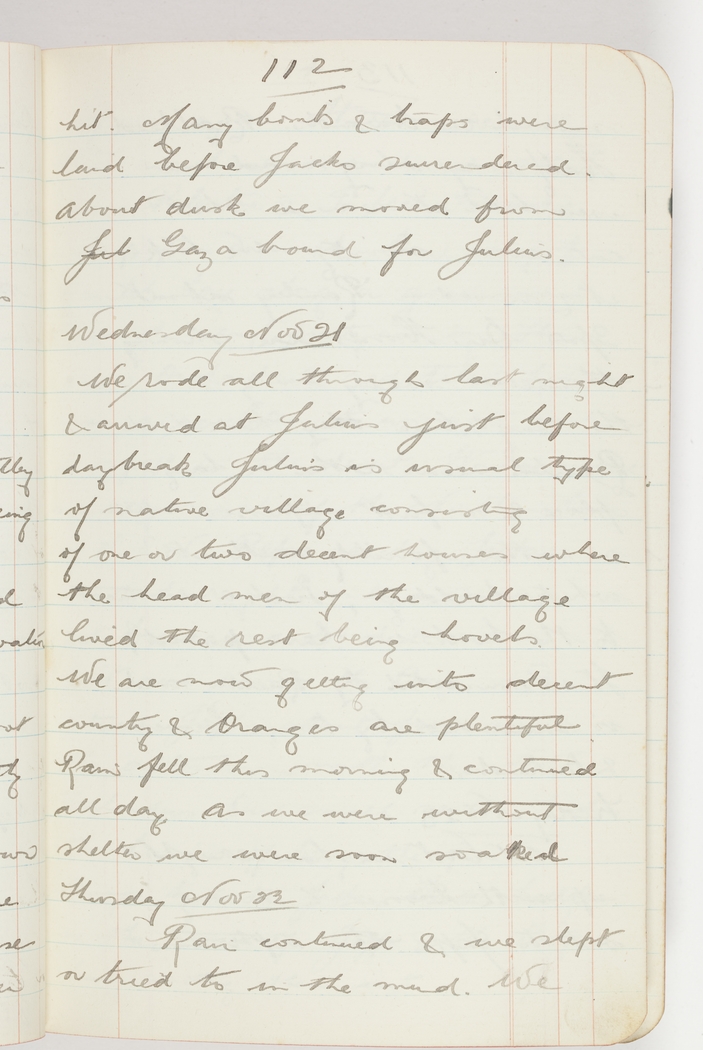 112
hit. Many bombs & traps were
laid before Jacko surrendered.
About dusk we moved from
Jul Gaza bound for Julius.
Wednesday Nov 21
We rode all through last night
& arrived at Julius just before
daybreak Julius is usual type
of native village consistg
of one or two decent houses where
the head men of the village
lived the rest being hovels.
We are now getting into decent
country & Oranges are plentiful
Rain fell this morning & contined
all day. As we were without
shelter we were soon soaked
Thursday Nov 22
Rain continued & we slept
or tried to in the mud. We